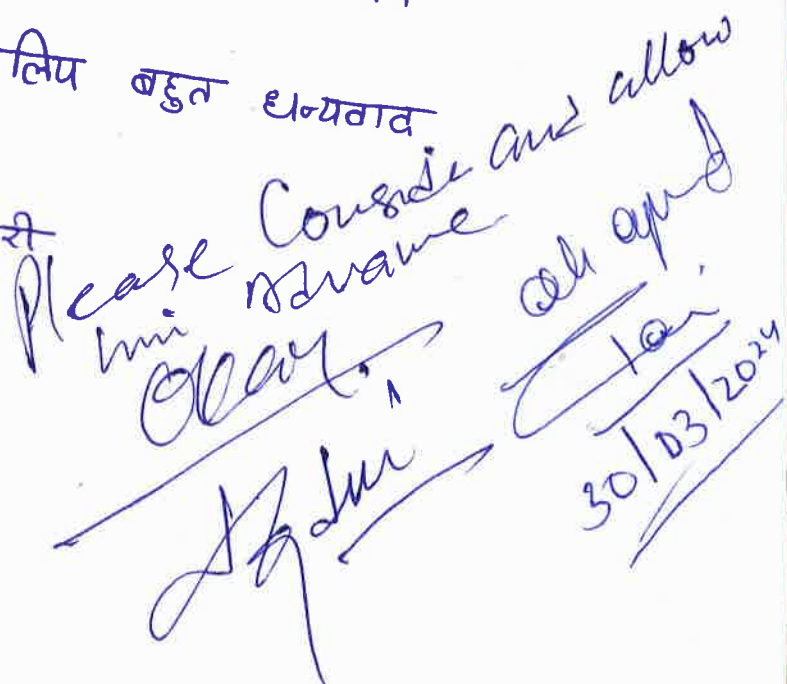 लिए बहुत धन्यवाद
री
Please Conside and allow
him Advance
Okay.
30/03/2024